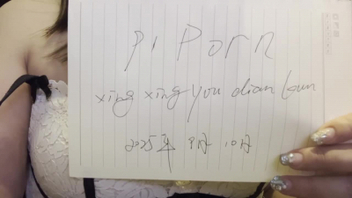 Pi Porn
xing xing you dian lan
2025年 9月 10日